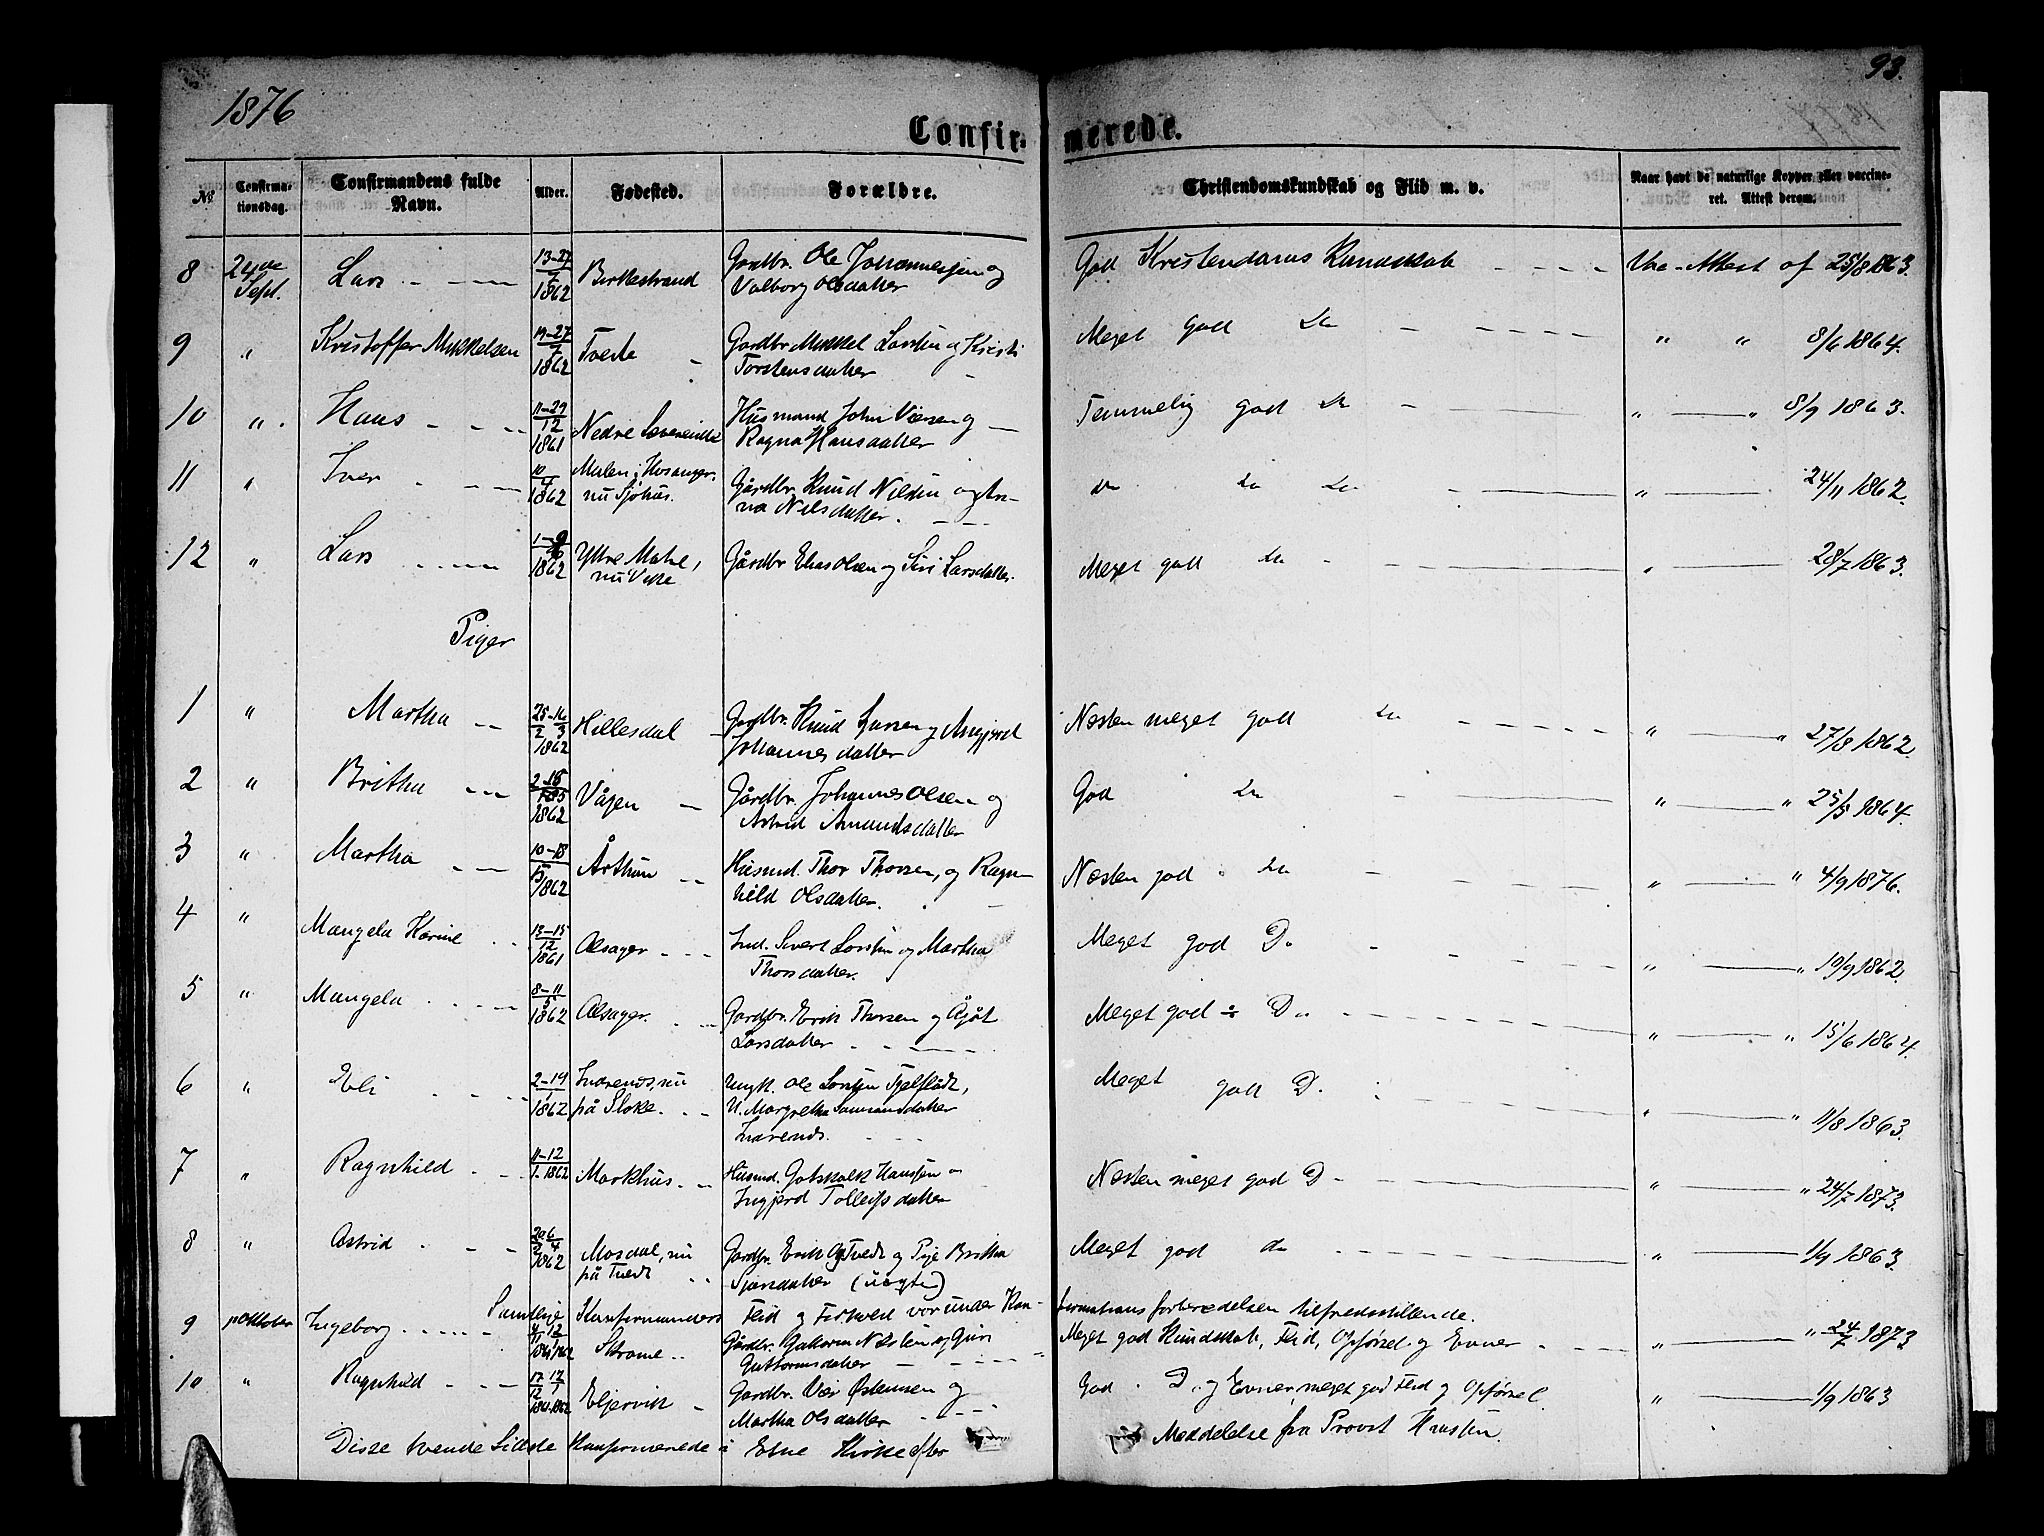 1876
93.
Confirmerede.
No
Confirmationsdag.
Confirmandens fulde Navn.
Alder.
Fødested.
Forældre.
Christendomskundskab og Flid m. v.
Naar havt de naturlige Kopper eller vaccineret. Attest derom.
8 24de Sept. Lars 13-27/7 1862 Birkestrand Gardbr. Ole Johannessen og God Kristendoms Kundskab Vac-Attest af 25/8 1863.
Valborg Olsdatter
9 " Kristoffer Mykkelsen 19-27/7 1862 Tvete Gardbr Mykkel Larsen og Kristi Meget God do " " 8/6 1864.
Torstensdatter
10 " Hans 11-29/12 1861 Nedre Husmand John og Temmelig god do " " 8/9 1863.
Ragna Hansdatter
11 " Iver 10/4 1862 Mulen i Hosanger, Gårdbr. Knud Nilsen og An- do do do " 24/11 1862.
nu Sjohus. na Nilsdatter.
12 " Lars 1-9/6 1862 Yttre Matre, Gårdbr Elias Olsen og Siri Larsdatter. Meget god do " 28/7 1863.
nu Vette
Piger
1 " Martha 25/2-16/3 1862 Hillesdal Gardbr. Knud Larsen og Ingjerd Næsten meget god do " " 27/8 1862.
Johannesdatter
2 " Britha 2-15/5 1862 Vågen Gårdbr. Johannes Olsen og God do " " 25/8 1864.
Astrid Amundsdatter
3 " Martha 10-18/5 1862 Århun Husmd. Thor Thorsen, og Ragn- Næsten god do " " 4/9 1876.
hild Olsdatter.
4 " Mangela Karine 13-15/12 1861 Alsager Ind. Sivert Larsen og Martha Meget god Do " " 19/9 1862
Thorsdatter.
5 " Mangela 8-11/5 1862 Alsager. Gardbr. Erik Thorsen og Ågåt Meget god ÷ Do " " 15/6 1864.
Larsdatter
6 " Eli 2-19/1 1862 nu Ungk. Ole Larsen Fjelstadt, Meget god D. " " 11/8 1863.
på Stoke. U. Margretha Samsonsdatter
7 " Ragnhild 11-12/1. 1862 Markhus Husmd. Gotskalk Hanssen Næsten meget god Do " " 24/7 1873.
Ingjerd Tolleifsdatter
8 " Astrid 20/2 6/4 1862 Mosdal, nu Gardbr. Erik Tvedt og Pige Britha Meget god do " 1/9 1863.
på Tvedt Sjursdatter (uegte)
Samtlige Konfirmanders Flid og Forhold var under Kon- firmations forberedelsen tilfredsstillende.
9 Oktober Ingeborg 1861 1862 Skrome Gårdbr. Guttorm Nilsen og Guri Meget god Kundskab, Flid, Opførsel og Evner " 24/7 1873
Guttormsdatter
10 " Ragnhild 17/12 12/1 1861-1862 Eljervik Gardbr. Østensen og God Do og Evner, meget god Flid og Opførsel. " 1/9 1863
Martha Olsdatter
Disse tvende Sidste Konfirmerede i Etne Kirke efter Meddelelse fra Provst Hansen